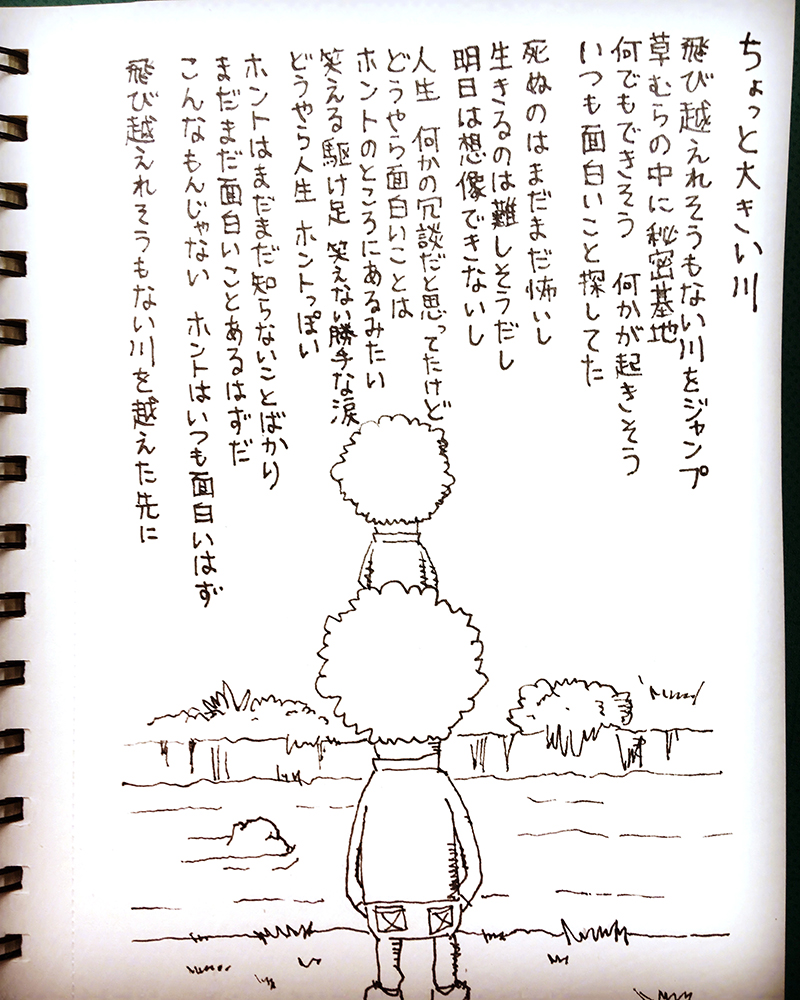 ちょっと大きい川
飛び越えれそうもない川をジャンプ
草むらの中に秘密基地
何でもできそう 何かが起きそう
いつも面白いこと探してた
死ぬのはまだまだ怖いし
生きるのは難しそうだし
明日は想像できないし
人生 何かの冗談だと思ってたけど
どうやら面白いことは
ホントのところにあるみたい
笑える駆け足 笑えない勝手な涙
どうやら人生 ホントっぽい
ホントはまだまだ知らないことばかり
まだまだ面白いことあるはずだ
こんなもんじゃない ホントはいつも面白いはず
飛び越えれそうもない川を越えた先に